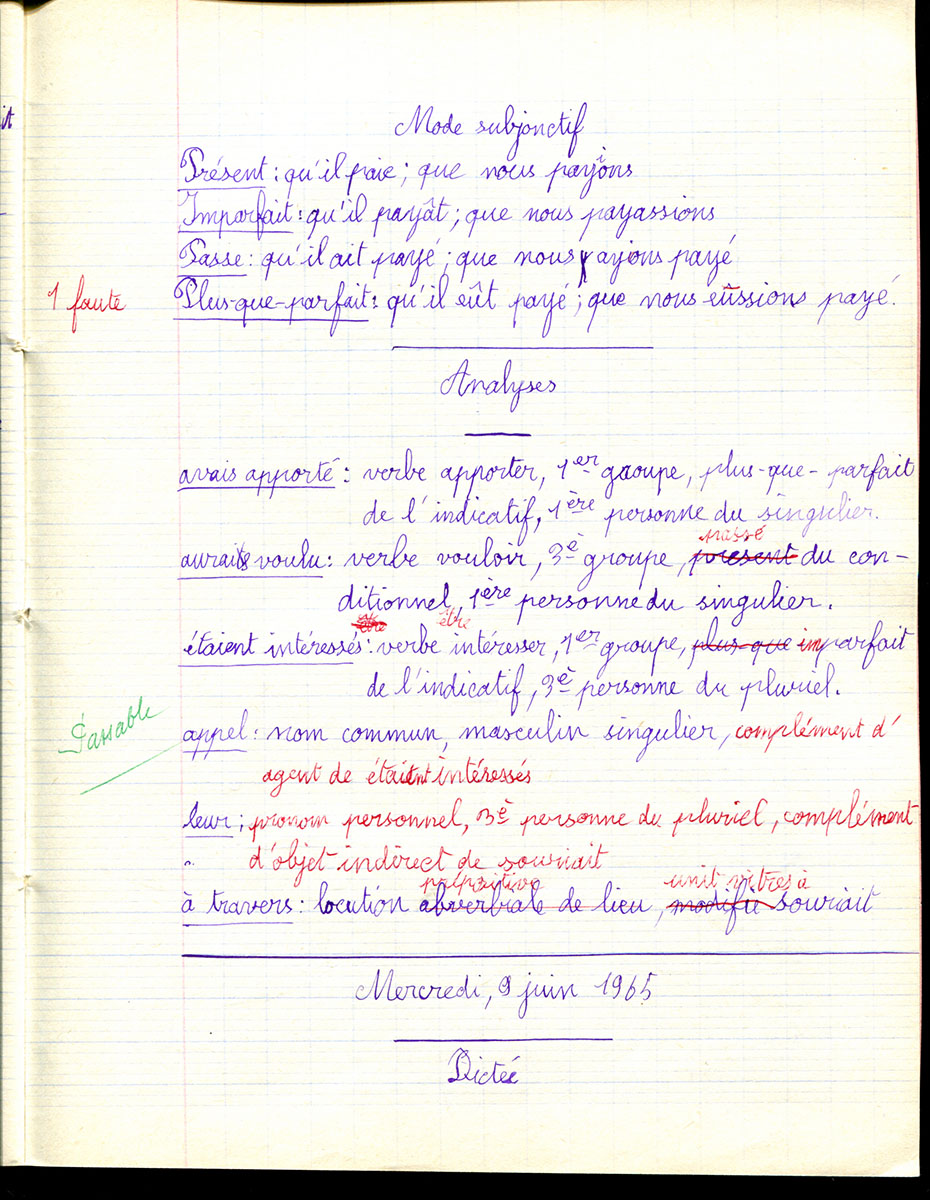 it
Mode subjonctif
Présent : qu'il paie ; que nous payions
Imparfait : qu'il payât ; que nous payassions
Passe : qu'il ait payé ; que nous ayions payé
1 faute
Plus-que-parfait : qu'il eût payé ; que nous eussions payé.
Analyses
avais apporté : verbe apporter, 1er groupe, plus-que-parfait
de l'indicatif, 1ère personne du singulier.
passé
aurais voulu : verbe vouloir, 3è groupe, présent du con-
ditionnel, 1ère personne du singulier.
être être
étaient intéressés : verbe intéresser, 1er groupe, plus-que imparfait
de l'indicatif, 3è personne du pluriel.
Passable
appel : nom commun, masculin singulier, complément d'
agent de étaient intéressés
leur ; pronom personnel, 3è personne du pluriel, complément
d'objet indirect de souriait
prépositive unit vitres à
à travers : locution abverbiale de lieu, modifie souriait
Mercredi, 9 juin 1965
Dictée